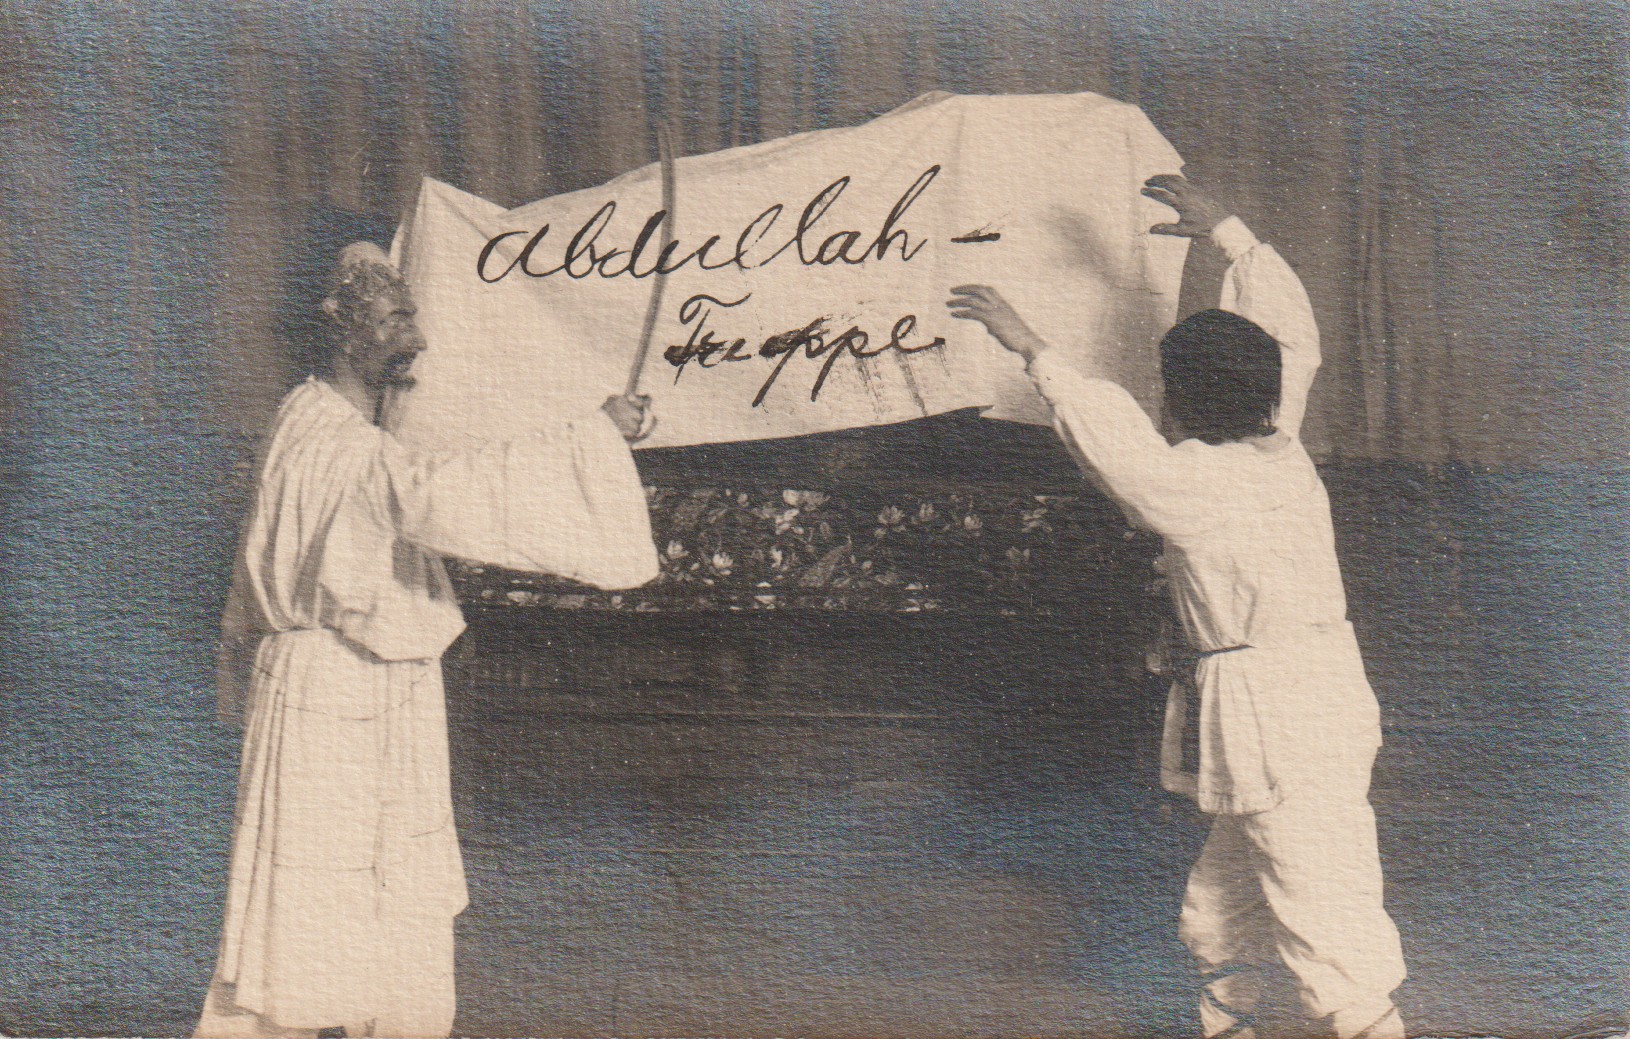 Abdullah –
Truppe